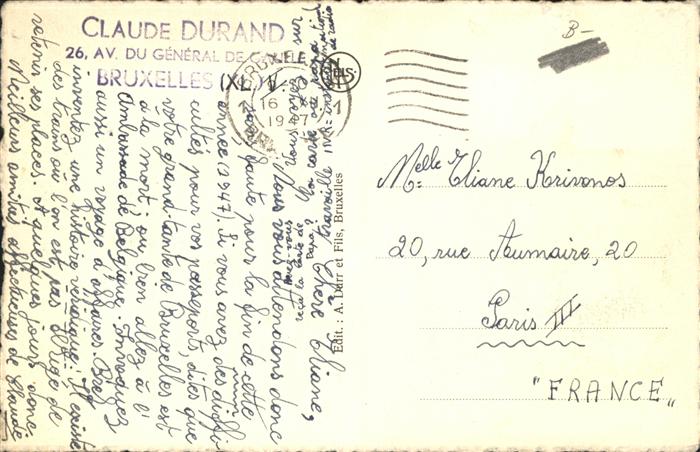 CLAUDE DURAND
26, AV. DU GÉNÉRAL DE GAULLE
BRUXELLES (XL.)
16
1947
B-
Melle Eliane Krivonos
20, rue Aumaire, 20
Paris III
"FRANCE"
Edit.: A. Dorr et Fils, Bruxelles
Chère Eliane,
Nous vous attendons donc
sans faute pour la fin de cette
année (1947). Si vous avez des diffi-
cultés pour vos passeports, dites que
votre grand-tante de Bruxelles est
à la mort; ou bien allez à l'
Ambassade de Belgique. Invoquez
aussi un voyage d'affaires. Bref,
inventez une histoire véridique! Il existe
des trains où l'on est pas obligé de
retenir ses places. A quelques jours donc.
Meilleures amitiés affectueuses de Claude
Avez-vous
reçu la carte de
Papa?